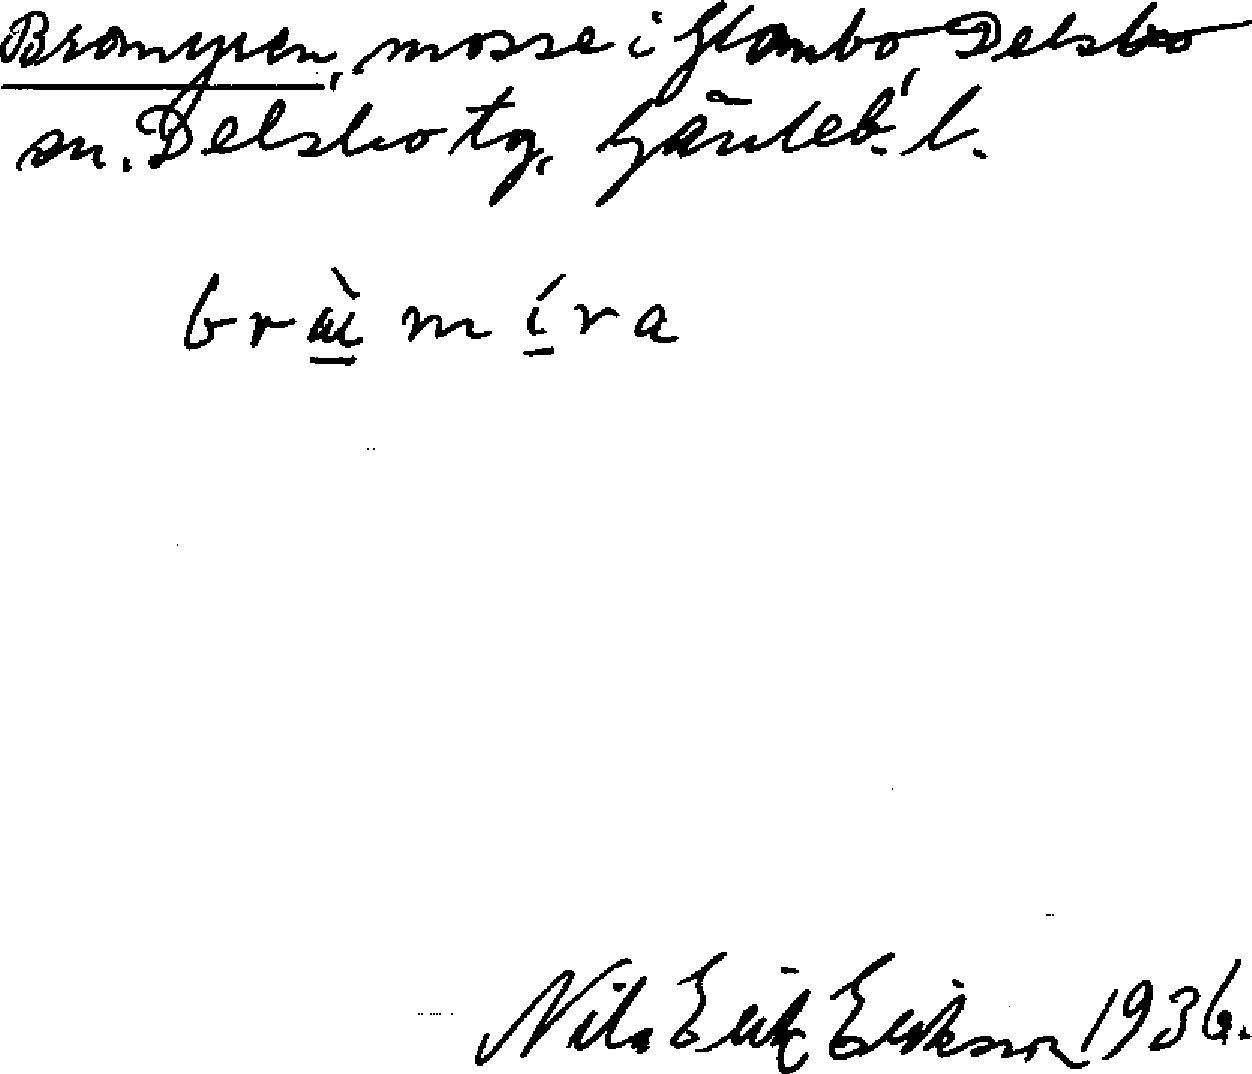 Bramyren, mosse i Flambo, Delsbo
sn. Delsbo tg, Gävleb. l.
Nils Erik Erikson 1936.